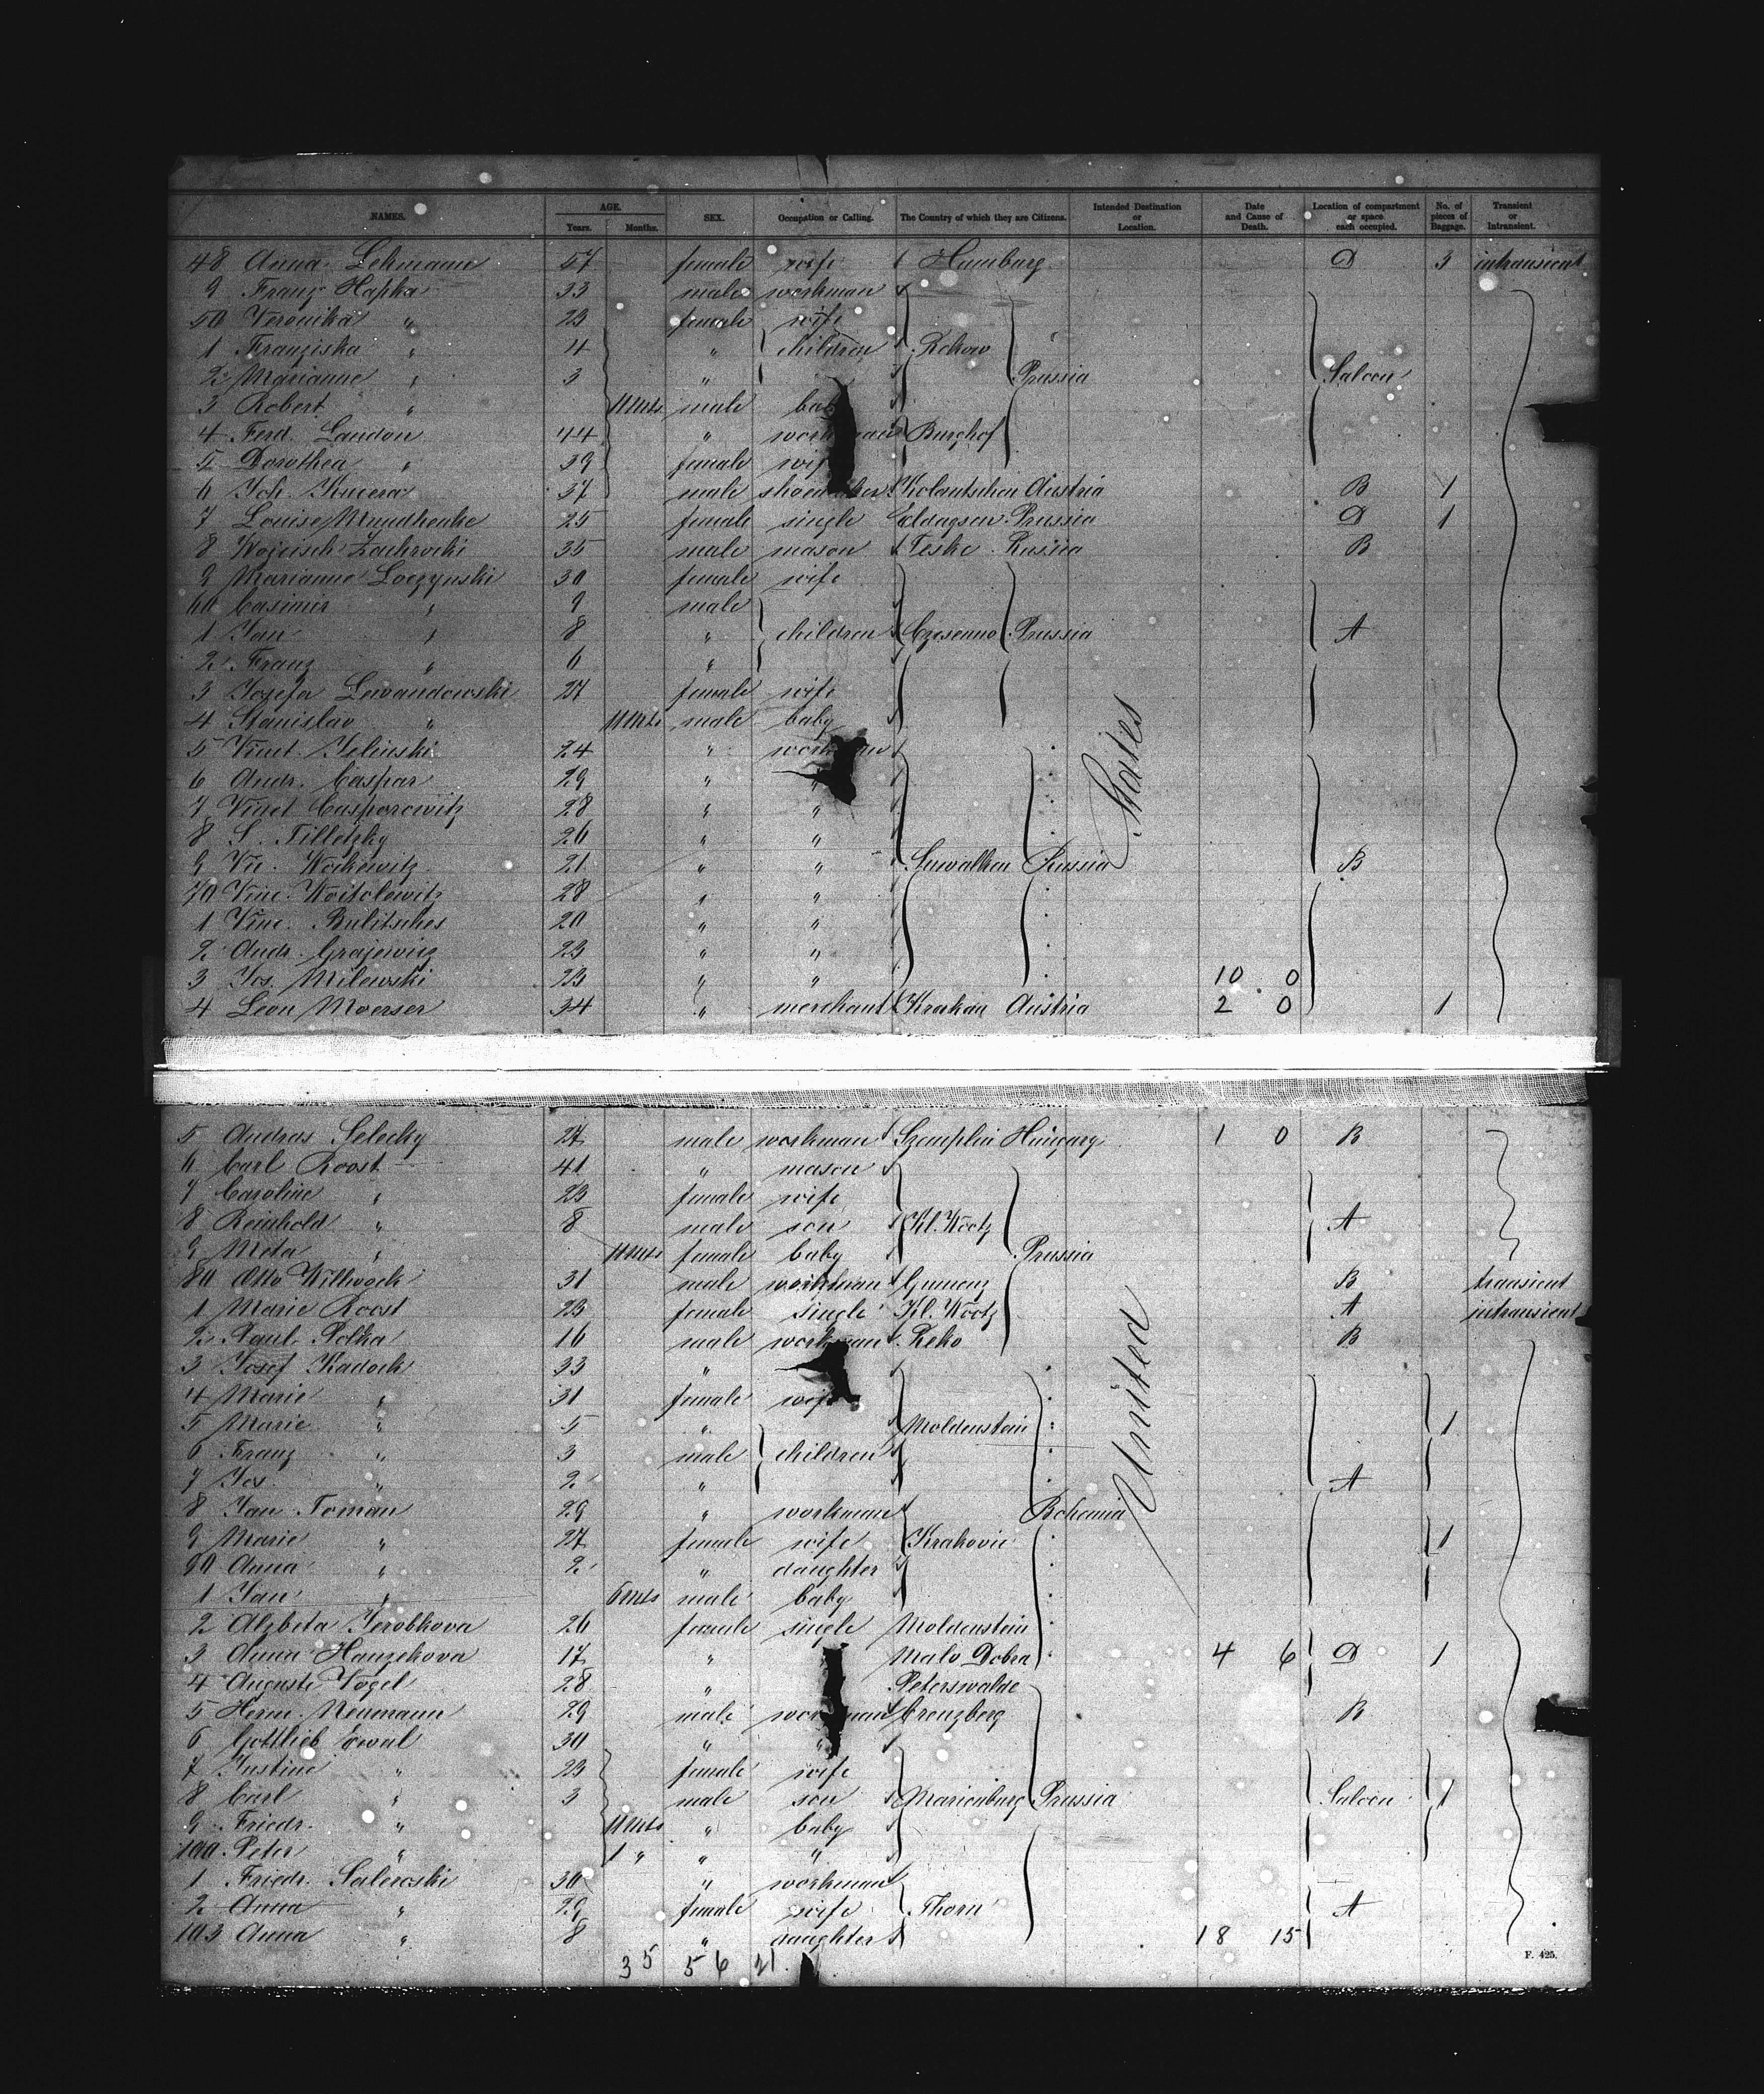 NAMES. AGE. Years. Months. SEX. Occupation or Calling. The Country of which they are Citizens. Intended Destination or Location. Date and Cause of Death. Location of compartment or space each occupied. No. of pieces of Baggage. Transient or Intransient.
48 Anna Lehmann 57 female wife Hamburg D 3 intransient
9 Franz Hapka 33 male workman
50 Veronika " 23 female wife
1 Franziska " 4 " children Rekow
2 Marianne " 3 " Prussia Saloon
3 Robert " 11 mts male baby
4 Ferd. Landon 44 " workman Burghof
5 Dorothea " 39 female wife
6 Joh. Kucera 37 male shoemaker Kolautschen Austria B 1
7 Louise Mundhenke 25 female single Eldagsen Prussia D 1
8 Wojcisch 35 male mason Teske Russia B
9 Marianne Loczynski 30 female wife
60 Casimir " 9 male
1 Jan " 8 " children Prussia A
2 Franz " 6 "
3 Josefa Lewandowski 27 female wife
4 Stanislav " 11 mts male baby
5 Vinct. Jelinski 24 " workman
6 Andr. Caspar 29 " "
7 Vinct Casparowitz 28 " "
8 S. Tilletzky 26 " "
9 Vic. Workewitz 21 " " Suwalken Russia B
70 Vinc. Woitolewitz 28 " "
1 Vinc. Bulitsches 20 " "
2 Andr. Grajewicz 23 " "
3 Jos. Milewski 23 " " 10 0
4 Leon Moerser 34 " merchant Krakau Austria 2 0 1
States
5 Andras Selecky 27 male workman Szemplin Hungary 1 0 B
6 Carl Roost 41 " mason
7 Caroline " 23 female wife
8 Reinhold " 8 male son Kl. Wootz A
9 Meta " 11 mts female baby Prussia
80 Otto Willwock 31 male workman Gumenz B transient
1 Marie Roost 23 female single Kl. Wootz A intransient
2 Paul Polka 16 male workman Reko B
3 Josef Kadoch 33 "
4 Marie " 31 female wife
5 Marie " 5 " Moldenstein 1
6 Franz " 3 male children
7 Jos. " 2 " A
8 Jan Toman 29 " workman Bohemia
9 Marie " 27 female wife Krakovic 1
90 Anna " 2 " daughter
1 Jan " 6 mts male baby
2 Alzbeta Jerobkova 26 female single Moldenstein
3 Anna Hanzekova 17 " Malo Dobra 4 6 D 1
4 Auguste Vogel 28 " Peterswalde
5 Herm. Neumann 29 male workman Creuzberg B
6 Gottlieb Ewal 30 " "
7 Justine " 23 female wife
8 Carl " 3 male son Marienburg Prussia Saloon 1
9 Friedr. " 11 mts " baby
100 Peter " 1 " " "
1 Friedr. Salewski 30 " workman
2 Anna " 29 female wife Thorn A
103 Anna " 8 " daughter 18 15
United
35 56 21
F. 425.